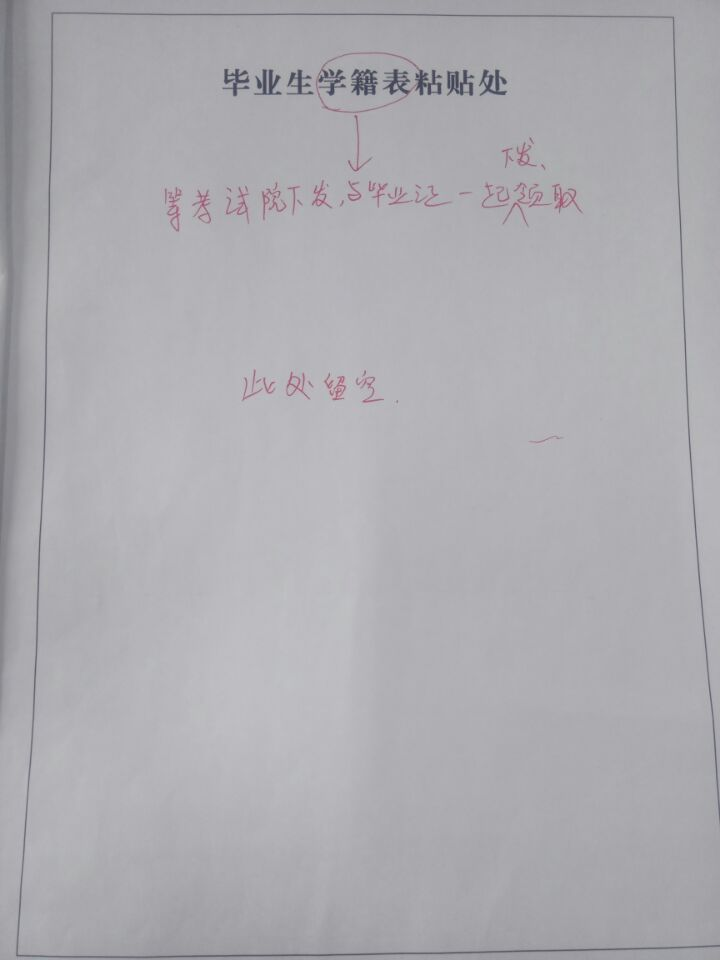 毕业生学籍表粘贴处
下发、
等考试院下发,与毕业证一起领取
此处留空.